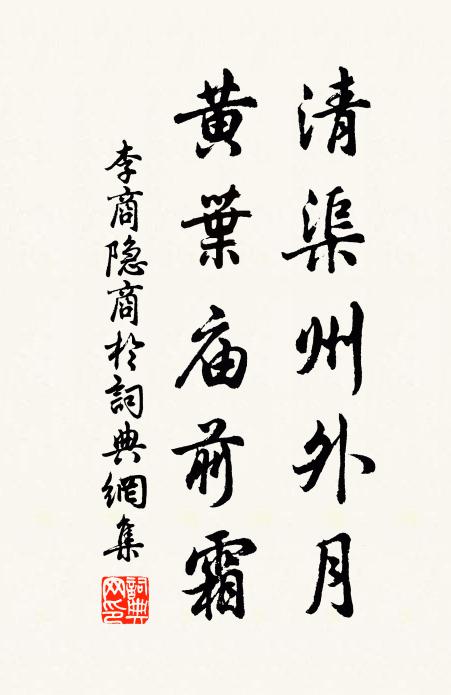 清渠州外月
黄葉庙前霜
李商隐商於詞典網集
詞典网印